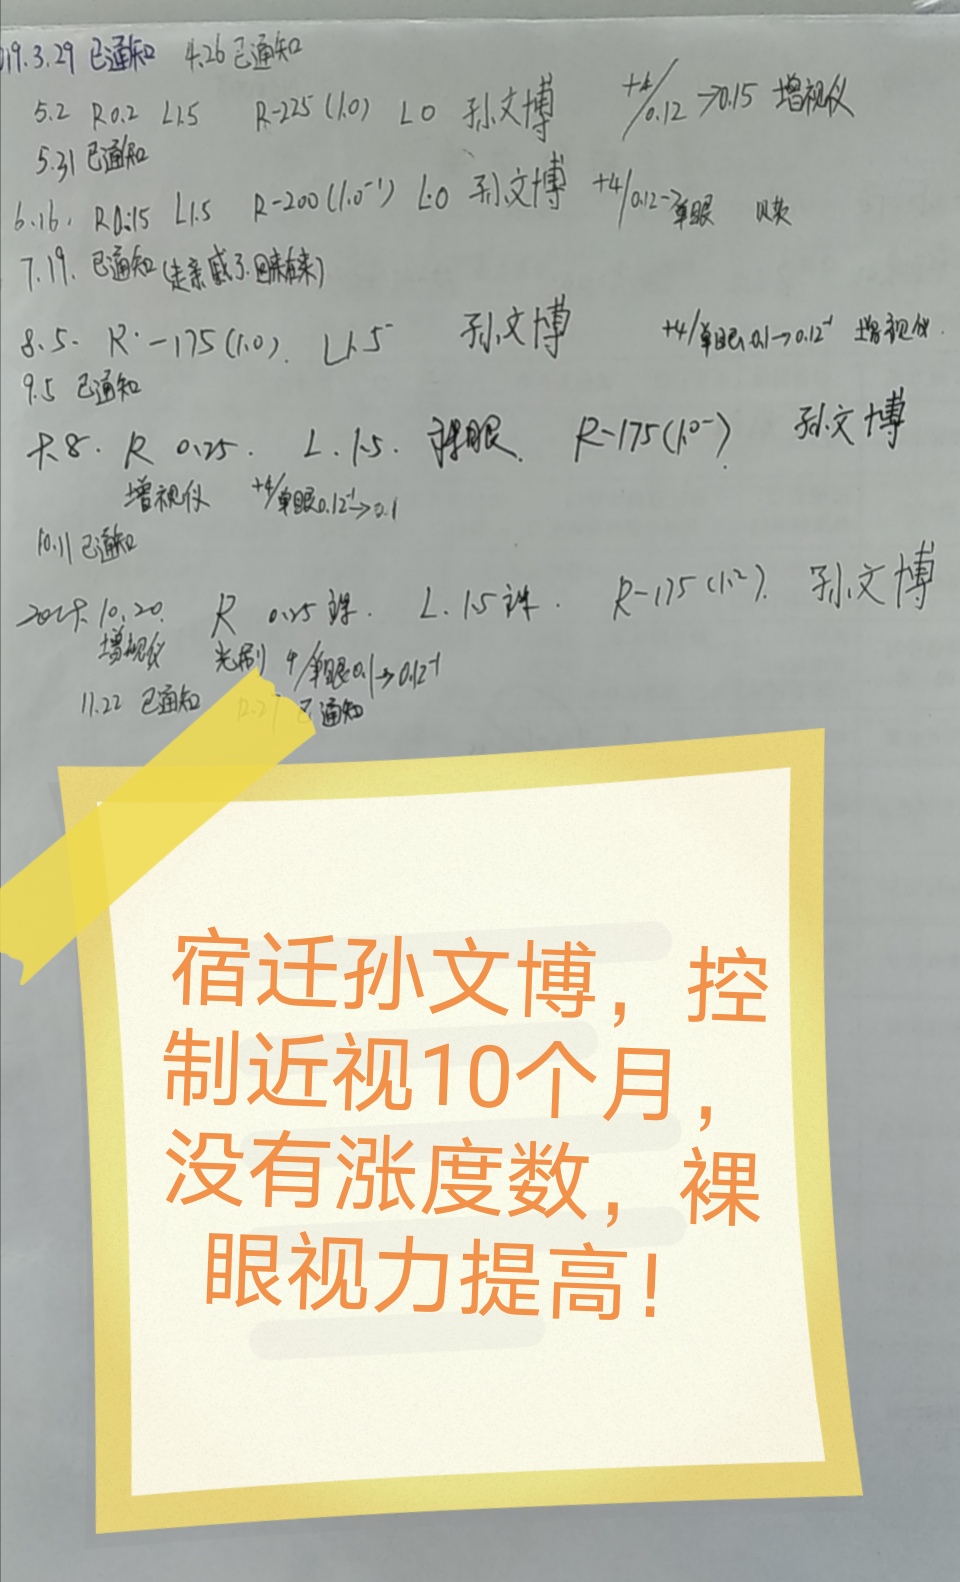 019.3.29 已通知 4.26已通知
5.2 R0.2 L1.5 R-225(1.0) L0 孙文博 +4/0.12→0.15 增视仪
5.31 已通知
6.16. R0.15 L1.5 R-200(1.0⁻¹) L:0 孙文博 +4/0.12→单眼
7.19. 已通知(走亲戚了.回来再来)
8.5. R -175(1.0). L1.5 孙文博 +4/单眼0.1→0.12⁻¹ 增视仪.
9.5 已通知
8. R 0.25. L.1.5. 裸眼. R-175(1.0⁻). 孙文博
增视仪 +4/单眼0.12⁻¹→0.1
10.11 已通知
10.20. R 0.25 L.1.5 R-175(1.2). 孙文博
增视仪 光刷 4/单眼0.1→0.12⁻¹
11.22 已通知 12.27 已通知
宿迁孙文博，控
制近视10个月，
没有涨度数，裸
眼视力提高！